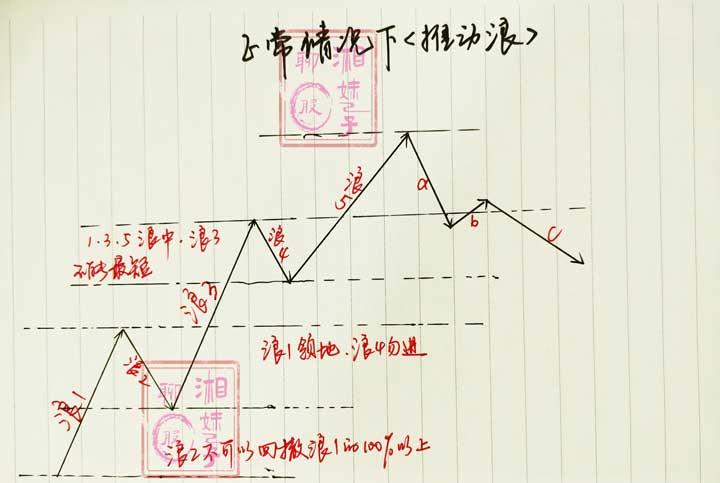 正常情况下<推动浪>
聊 湘妹子
股
浪5
a
b
c
1.3.5浪中.浪3
不能最短
浪4
浪3
浪1领地.浪4勿进
浪1
浪2
聊 湘妹子
股
浪2不可以回撤浪1的100%以上